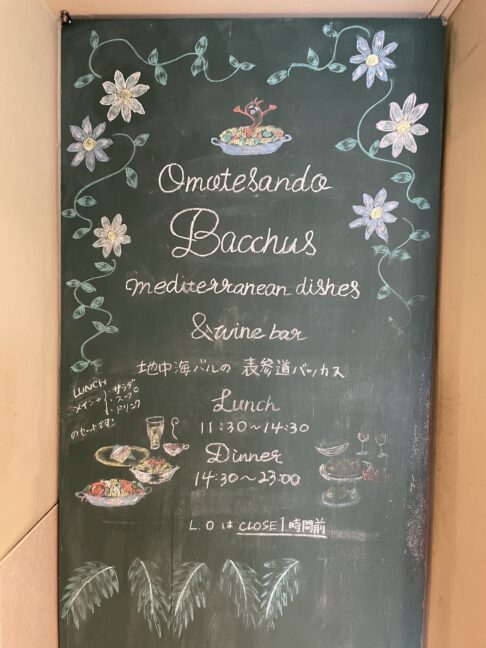 Omotesando
Bacchus
mediterranean dishes
& wine bar
地中海バルの 表参道バッカス
LUNCH
メイン+ ・サラダ
・スープ
・ドリンク
のセットです!
Lunch
11:30~14:30
Dinner
14:30~23:00
L.O は CLOSE 1時間前